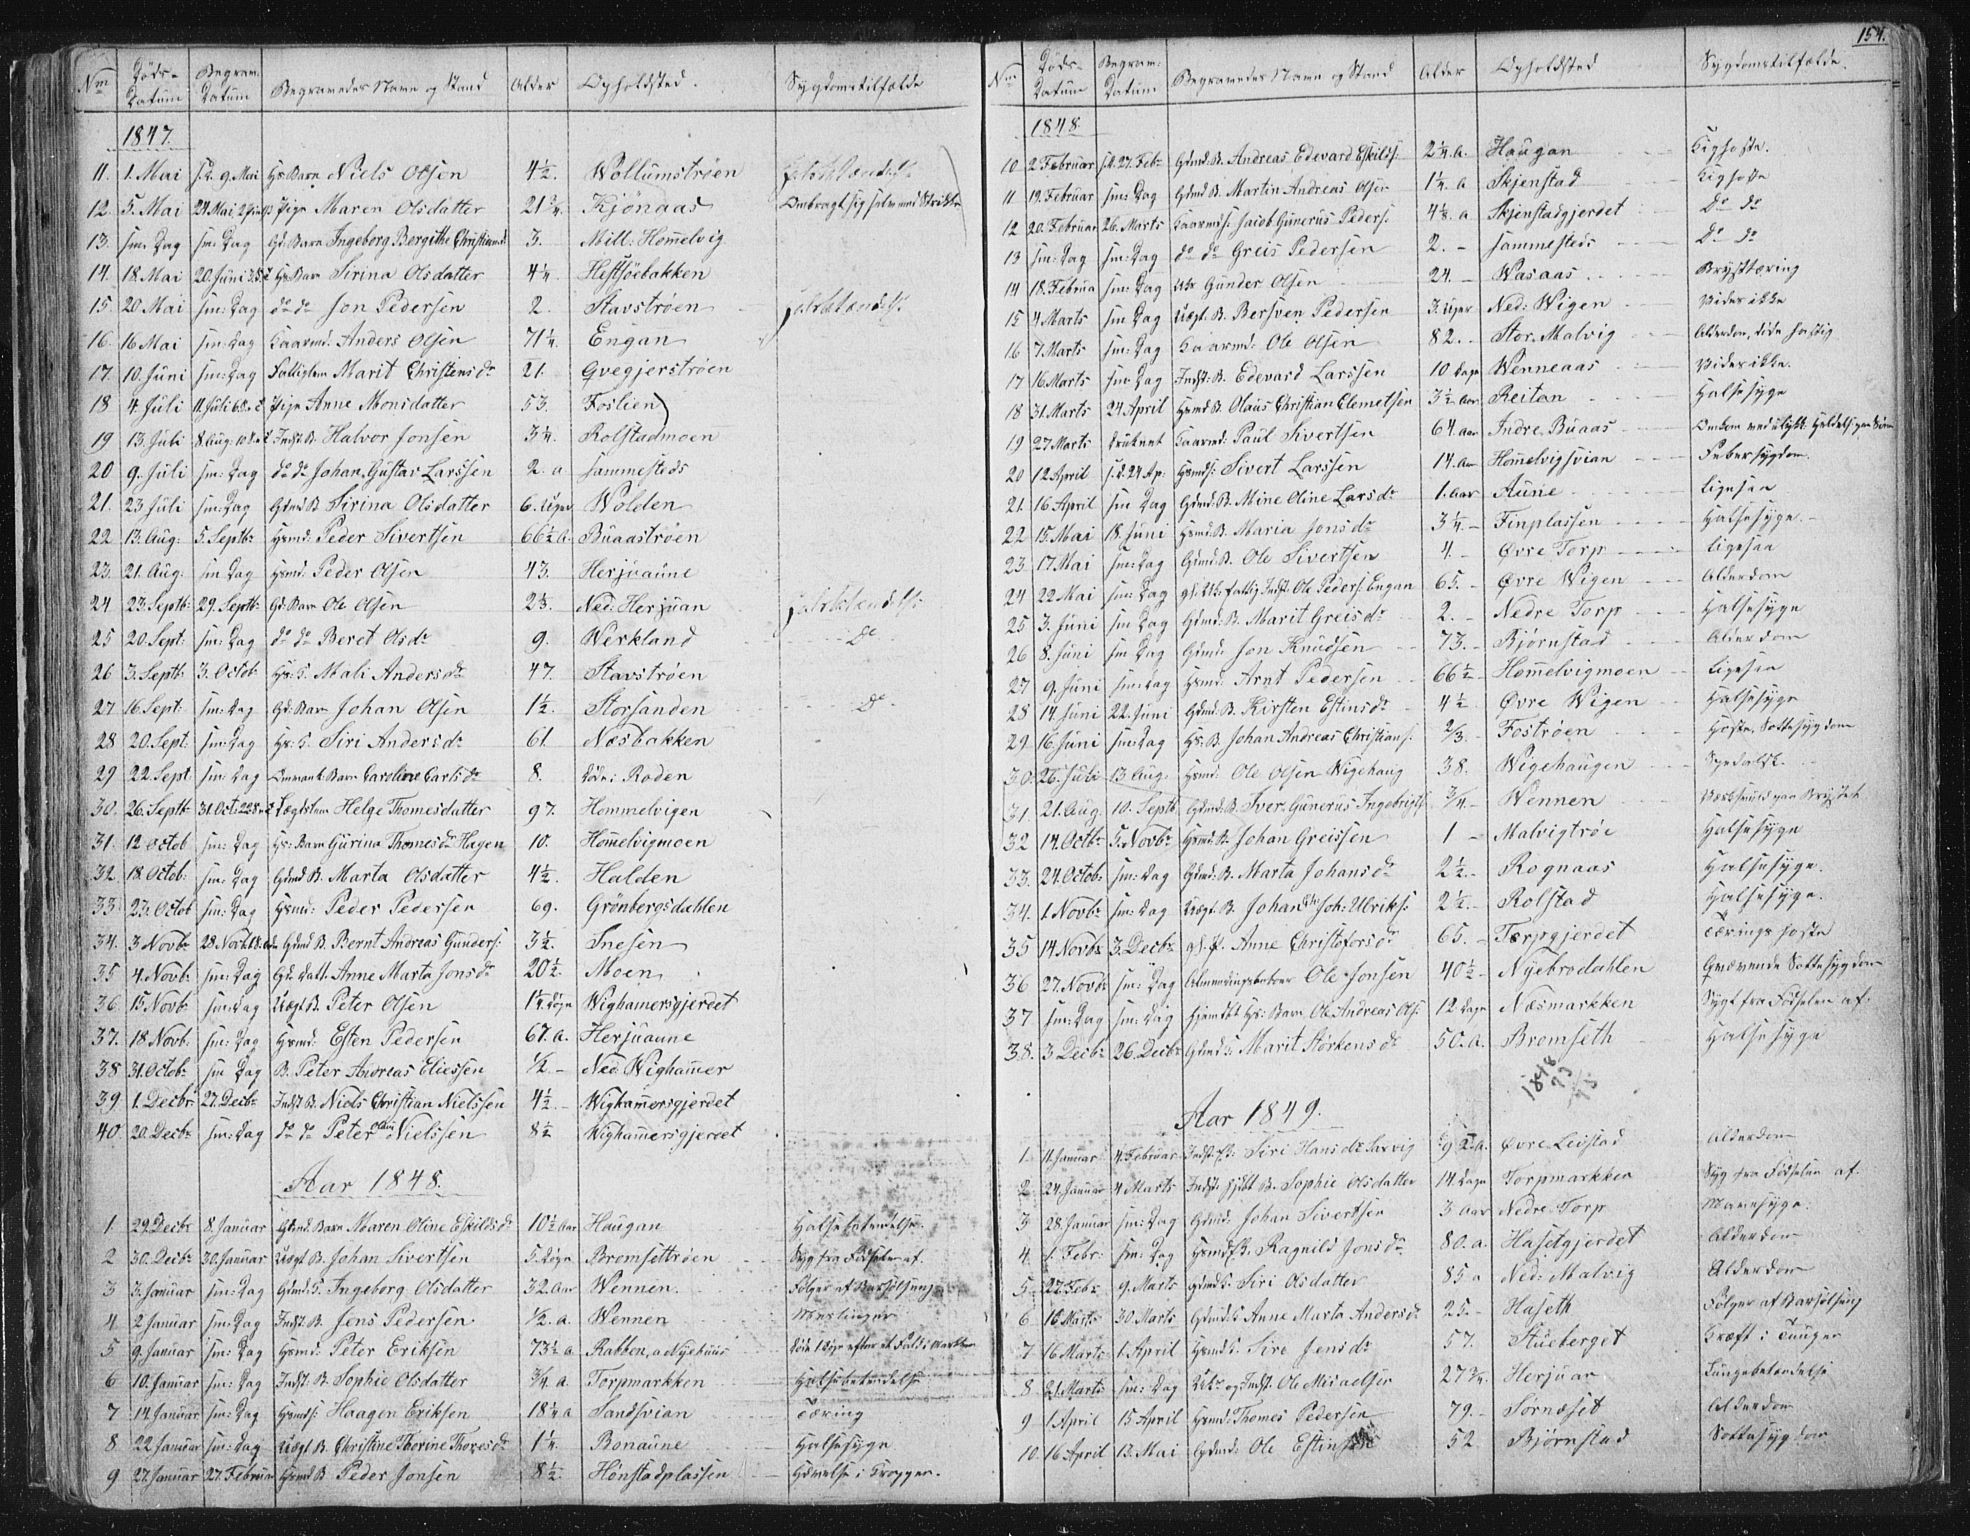 154.
Nm Døds-Datum Begrav: Datum Begravedes Navn og Stand Alder Opholdsted. Sygdomstilfælde
1847.
11. 1. Mai s.D. 9. Mai Hs Barn Niels Olsen 4½. Wollumstrøen
12. 5. Mai 24 Mai Pige Maren Olsdatter 21¾. Kjönaas Ombragt sig selv med Strikke
13. sm: Dag sm: Dag Gd: Barn Ingeborg Bergithe Christiansd: 3. Mill: Hommelvig
14. 18. Mai 20. Juni Hs Barn Sirina Olsdatter 4¼. Hestsjöebakken
15. 20. Mai sm: Dag do do Jon Pedersen 2. Stavströen
16. 16 Mai sm: Dag Kaarmd: Anders Olsen 71¼. Engan
17. 10. Juni sm: Dag Fattiglem Marit Christensdr 21. Gvegjerströen
18 4. Juli 11. Juli Pige Anne Monsdatter 53. Foslien
19 13. Juli 8. Aug: Indst. B. Halvor Jonsen 3¼. Rolstadmoen
20 9. Juli sm: Dag do do Johan Gustav Larssen 2. a sammesteds
21. 23 Juli sm: Dag Gdmd B Sirina Olsdatter 6. Uger Wolden
22 13. Aug: 5. Septbr Hsmd: Peder Sivertsen 66½ a. Buaaströen
23. 21. Aug: sm Dag Hsmd: Peder Olsen 43. Herjuaune
24 23. Septbr 29. Septbr Gd: Barn Ole Olsen 2⅓. Ned: Herjuan
25 20. Sept: sm: Dag do do Beret Olsdr 9. Werkland Do
26 3. Septbr 3. Octob Hs: K. Mali Andersdr 47. Stavströen
27 16. Sept: sm: Dag Gd: Barn Johan Olsen 1½. Storsanden Do.
28 20. Sept: sm: Dag Hs: K. Siri Andersdr 61 Næsbakken
29 22. Sept sm: Dag Barn Caroline Carlsdr 8. Roden
30. 26. Septbr 31. Oct: Lægdslem Helge Thomesdatter 97. Hommelvigen
31. 12 Octob sm: Dag Hs: Barn Gurina Thomesdr Hagen 10. Hommelvigmoen
32. 18. Octob: sm: Dag Gdmd B. Marta Olsdatter 4½. Halden
33. 23. Octob sm: Dag Hsmd: Peder Pedersen 69. Grönbergsdahlen
34. 3 Novbr 28 Novbr Gdmd B. Bernt Andreas Gunders: 3½. Snesen
35 4. Novb: sm: Dag Gd: Datt: Anne Marta Jonsdr 20½. Moen
36 15 Novb: sm: Dag Uægt B. Peter Olsen 1¼. Dage Wighamersgjerdet
37. 18 Novb. sm: Dag Hsmd: Esten Pedersen 67. a. Herjuaune
38 31. Octob: sm Dag B. Peter Andreas Eliessen ½. - Ned: Wighammer
39 1. Decbr 27. Decbr Indst B. Niels Christian Nielssen 4½. - Wighamersgjerdet
40 20. Decbr sm: Dag do do Peter Olaus Nielssen 8½ Wighamersgjerdet
Aar 1848.
1 29. Decbr 8. Januar Gdmd: Barn Maren Oline Eskildsdr 10½ Aar Haugan Halsebetendelse.
2 30. Decbr 30. Januar Uægt B. Johan Sivertsen 5. Dage Bromsettröen Syg fra Fødselen af.
3 3. Januar sm: Dag Gdmd: K. Ingeborg Olsdatter 32. Aar Wennen. Følger af Barselseng
4 2 Januar sm: Dag Indst B. Jens Pedersen ½. a. Wennen Mæslinger
5 9. Januar sm: Dag Hsmd: Peter Eriksen 73½ a Rabben, a Nyehuus
6 10. Januar sm: Dag Indst: B. Sophie Olsdatter ¾. a. Torpmarkken Halsebetendelse
7 14. Januar sm: Dag Hsmds: Haagen Eriksen 18¼ a Sandsvian Tæring
8 22. Januar sm: Dag Uægt B. Christine Thorine Thoresdr 1¼. Bonaune Halsesyge
9 27. Januar 27. Februar Hsmd B Peder Jonsen 8½. Hönstadplassen Hævelse i Kroppen.
Nm Døds-Datum Begrav: Datum Begravedes Navn og Stand Alder Opholdsted Sygdomstilfælde.
1848
10 2 Februar s.d. 27. Febr Gdmd: B. Andreas Edevard Eskilds: 2¼. a. Haugan Kighoste.
11 19. Februar sm: Dag Gdmd B. Martin Andreas Olsen 1¼. a Skjenstad Kighoste
12 20. Februar 26. Marts Kaarmds: Jacob Gunerus Peders: 4⅛. a Skjenstadgjerdet Do Do
13 sm: Dag sm: Dag do do Greis Pedersen 2. - sammesteds Do Do
14 18. Februar sm: Dag Gunder Olsen 24. - Wasaas Brysttæring
15 4. Marts sm: Dag Uægt. B. Bersven Pedersen 3. Uger Ned: Wigen Vides ikke
16 7. Marts sm: Dag Kaarmd: Ole Olsen 82. - Stor. Malvig Alderdom, døde hastig
17 16. Marts sm: Dag Indst: B. Edevard Larssen 10 Dage Wenneaas Vides ikke.
18 31. Marts 24 April Hsmd B. Olaus Christian Clemetsen 3½ Aar Reitan Halsesyge
19 27 Marts Kaarmd: Paul Sivertsen 64. Aar Indre Buaas
20 12 April s.d. 24 Ap: Hsmds: Sivert Larssen 14. Aar Homelvigsvian Febersygdom.
21. 16 April sm: Dag Gdmd: B. Mine Oline Larsdr 1. Aar Aune Ligesaa
22 15. Mai 18. Juni Hsmd: B. Maria Jonsdr 3¼. - Finplassen Halsesyge. -
23 17 Mai sm: Dag Gdmd: B. Ole Sivertsen 4. - Øvre Torp Ligesaa
24 22 Mai sm: Dag fattig Indst: Ole Peders: Engan 65. - Øvre Wigen Alderdom
25 3. Juni sm Dag Gdmd: B. Marit Greisdr 2. - Nedre Torp Halsesyge
26 8. Juni sm Dag Gdmd: Jon Knudsen 73. - Björnstad Alderdom
27 9. Juni sm: Dag Hsmd: Arnt Pedersen 66½ - Homelvigmoen Ligesaa
28 14. Juni 22. Juni Gdmd: B. Kirsten Estinsdr 4½ - Øvre Wigen Halsesyge
29 16. Juni sm: Dag Hs: B. Johan Andreas Christians: ⅔. - Foströen Hoste, Sottesygdom
30. 26. Juli 13 Aug: Hsmd: Ole Olsen Wigehaug 38. Wigehaugen Spedalsk.
31. 21. Aug: 10. Septb Gdmd: B. Iver Gunerus Ingebrigts: ¾. - Wennen
32 14. Octbr 5. Novbr Hsmd B. Johan Greissen 1 - Malvigtröe Halsesyge
33. 24. Octob: sm: Dag Gdmd: B. Marta Johansdr 2½. - Rognaas Halsesyge.
34. 1. Novbr sm: Dag Uægt. B. Johan Joh: Ulriks: 2½. - Rolstad Halsesyge.
35 14 Novbr 3. Decbr gl. P. Anne Christofersdr 65. - Torpgjerdet Tærings hoste
36 27. Novbr sm: Dag Almindingsbeboer Ole Jonsen 40½ - Nyebrodahlen Gnavende Sottesygdom
37 sm: Dag sm: Dag hjemdøbt Hs: Barn Ole Andreas Ols: 12 Dage Næsmarkken Sygt fra Fødselen af.
38. 3 Decbr 26. Decbr Gdmd: K. Marit Störkensdr 50. a. Bromseth Halsesyge
1848
73
Aar 1849.
1. 11. Januar 4. Februar Siri Hansdr Saxvig Øvre Leistad Alderdom
2 24 Januar 4 Marts Indst: hjdbt B. Sophie Olsdatter 14 Dage Torpmarkken Syg fra Fødselen af.
3 28. Januar sm: Dag Gdmd: Johan Sivertsen 3 Aar Nedre Torp Mavesyge.
4. 1. Febr: sm: Dag Ragnild Jonsdr 80. a. Hasetgjerdet Alderdom
5 22 Febr 9. Marts Gdmd K. Siri Olsdatter 85 a Ned: Malvig Alderdom
6 15 Marts 30 Marts Gdmd K Anne Marta Andersdr 25. - Haseth Følger af Barselseng
7 16 Marts 1. April Hsmd K. Sire Jensdr 57. Stueberget Kræft i Tungen
8 21. Marts sm: Dag og Indst: Ole Micaelsen 27¾. Herjuan Lungebetændelse
9 1 April 15 April Hsmd: Thomes Pedersen 79. - Sornæset Alderdom
10. 16 April 13. Mai Gdmd: Ole Estinsen 52 Björnstad Sottesygdom